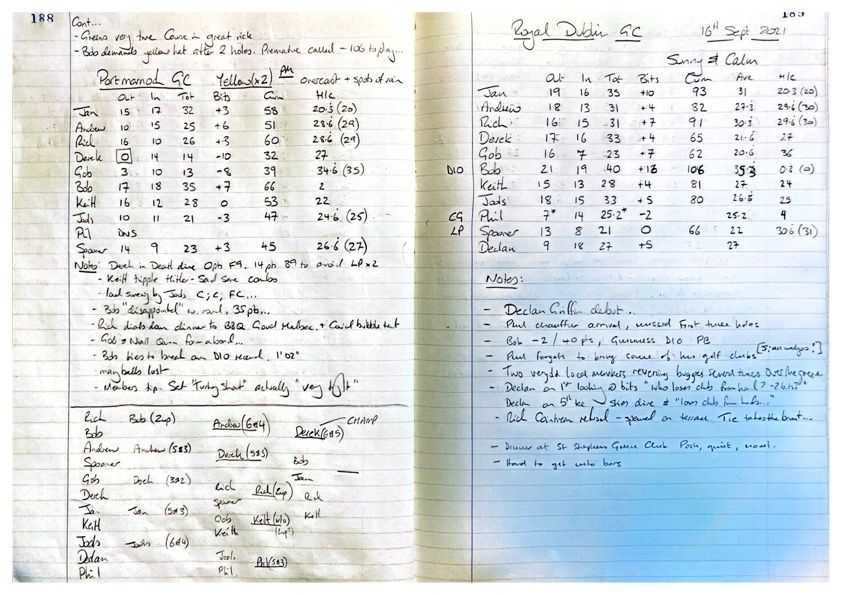 188
Cont...
- Greens very true Course in great nick
- Bob demands yellow hat after 2 holes. Premature called - 106 to play...
Portmarnock GC Yellow (x2) PM overcast + spots of rain
Out In Tot Bits Cum H/c
Jan 15 17 32 +3 58 20.3 (20)
Andrew 10 15 25 +6 51 28.6 (29)
Rich 16 10 26 +3 60 28.6 (29)
Derek 0 14 14 -10 32 27
Gob 3 10 13 -8 39 34.6 (35)
Bob 17 18 35 +7 66 2
Keith 16 12 28 0 53 22
Jods 10 11 21 -3 47 24.6 (25)
Pil DNS
Spooner 14 9 23 +3 45 26.6 (27)
Notes: Derek in Death dive 0 pts F9, 14 pts B9 to avoid LP x2
- Keith tipple
- Jods C; C; FC...
- Bob "disappointed" w. 35 pts...
- Rich dinner to BBQ + hat
- Gob + Niall Quinn
- Bob tries to break an DIO record. 1'02"
many balls lost
- Members tip. Set actually "very
Rich Bob (2up) Andrew (6&4) Derek (6&5) CHAMP
Bob
Andrew Andrew (5&3) Derek (5&3)
Spooner
Bob
Gob Derek (3&2) Jan
Derek Rich Rich (2up) Rich
Spooner
Jan Jan (5&3) Gob Keith (w/o) Keith
Keith Keith (2up?)
Jods Jods (6&4)
Declan Jods Phil (5&3)
Phil Phil.
189
Royal Dublin GC 16th Sept 2021
Sunny & Calm
Out In Tot Bits Cum Ave H/c
Jan 19 16 35 +10 93 31 20.3 (20)
Andrew 18 13 31 +4 82 27.3 29.6 (30)
Rich 16 15 31 +7 91 30.3 29.6 (30)
Derek 17 16 33 +4 65 21.6 27
Gob 16 7 23 +7 62 20.6 36
DIO Bob 21 19 40 +13 106 35.3 0.2 (0)
Keith 15 13 28 +4 81 27 24
Jods 18 15 33 +5 80 26.6 25
CG Phil 7* 14 25.2* -2 25.2 9
LP Spooner 13 8 21 0 66 22 30.6 (31)
Declan 9 18 27 +5 27
Notes:
- Declan Griffin debut.
- Phil chauffeur arrival, missed first three holes
- Bob -2 / 40 pts, Guinness DIO PB
- Phil forgets to bring some of his golf clubs
- Two verydd local members reversing buggies several times over the green
- Declan on 1st looking @ bits "who loses club from hand? -2 bits?"
Declan on 5th tee skies drive & "loses club from hands..."
- Rich Cointreau refusal - on terrace. Tie takes the brunt...
- Dinner at St Stephens Green Club. Posh, quiet,
- Hard to get into bars